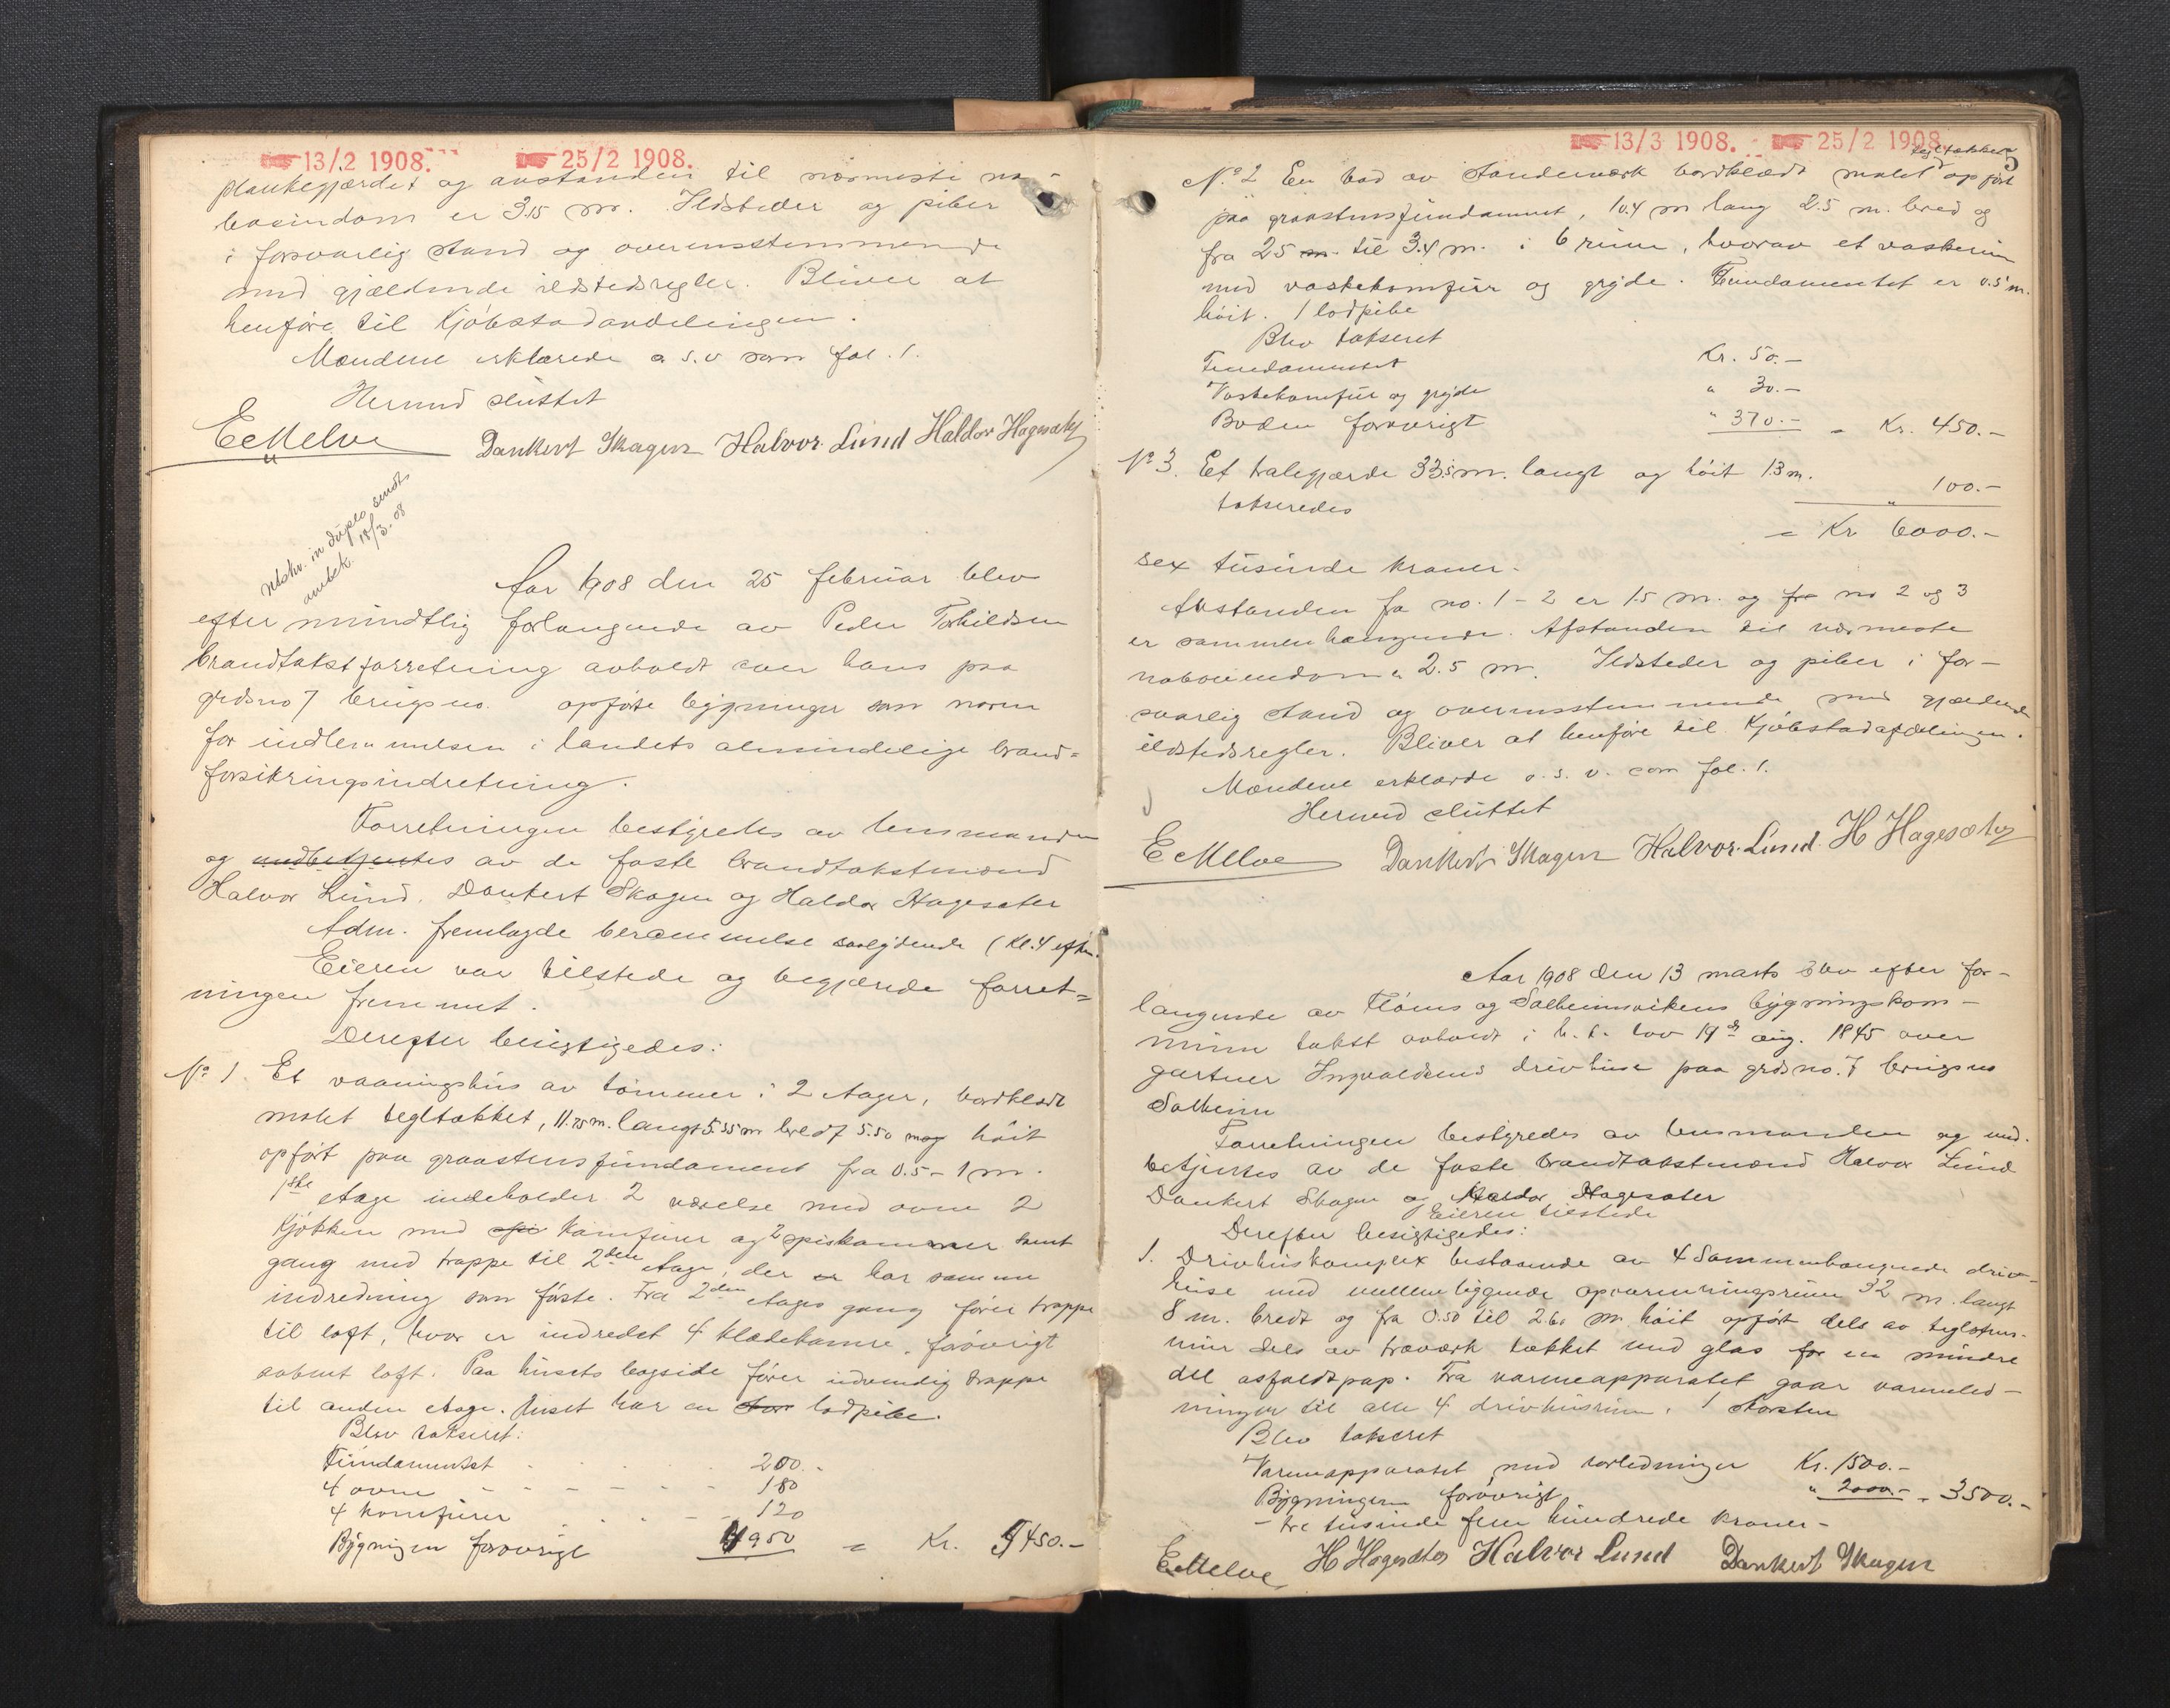 13/2 1908. 25/2 1908.
plankegjærdet og avstanden til nærmeste na-
boeindom er 3.15 m. Ildsteder og piber
i forsvarlig stand og overensstemmende
med gjældende ildstedsregler. Bliver at
henføre til Kjøbstadavdelingen.
Mændene erklærede o.s.v som fol. 1.
Hermed sluttet
E Melve Dankert Skagen Halvor Lund Haldor Hagesæter
utskr. in duplo sendt
ambek. 18/3. 08
Aar 1908 den 25 februar blev
efter mundtlig forlangende av Peder Torkildsen
brandtakstforretning avholdt over hans paa
grdsno 7 brugsno. opførte bygninger som norm
for indlemmelsen i landets almindelige brand=
forsikringsindretning.
Forretningen bestyredes av lensmanden
og medbetjentes av de faste brandtakstmænd
Halvor Lund, Dankert Skagen og Haldor Hagesæter
Adm. fremlagde berammelse saalydende (kl. 4 efterm.
Eieren var tilstede og begjærede forret=
ningen fremmet.
Derefter besigtigedes:
No 1. Et vaaningshus av tømmer i 2 etager, bordklædt
malet tegltækket, 11.75 m. langt 5.35 m bredt 5.50 m høit
opført paa graastensfundament fra 0.5 - 1 m.
1ste etage indeholder 2 værelse med ovne 2
kjøkken med komfurer og 2 spiskammer samt
gang med trappe til 2den etage, der er har samme
indredning som første. Fra 2den etages gang fører trappe
til loft, hvor er indredet 4 klædekamre, forøvrigt
aabent loft. Paa husets bagside fører udvendig trappe
til anden etage. Huset har en lodpibe.
Blev takseret:
Fundamentet 200.-
4 ovne 180
4 komfurer 120
Bygningen forøvrigt 4950 = Kr. 5450.-
13/3 1908. 25/2 1908.
5
tegltækket
No 2 En bod av standerværk bordklædt malet opført
paa graastensfundament, 10.4 m lang 2.5 m. bred og
fra 2.5 m. til 3.4 m. i 6 rum, hvorav et vaskerum
med vaskekomfur og gryde. Fundamentet er 0.5 m.
høit. 1 lodpibe
Blev takseret
Fundamentet Kr. 50.-
Vaskekomfur og gryde " 30.-
Boden forøvrigt " 370.- = Kr. 450.-
No 3. Et halegjærde 33.5 m. langt og høit 1.3 m.
takseredes " 100.-
= Kr 6000.-
sex tusinde kroner.
Avstanden fra no. 1 - 2 er 1.5 m. og fra no 2 og 3
er sammenhængende. Afstanden til nærmeste
naboeiendom er 2.5 m. Ildsteder og piber i for-
svarlig stand og overensstemmende med gjældende
ildstedsregler. Bliver at henføre til Kjøbstadafdelingen.
Mændene erklærede o. s. v. som fol. 1.
Hermed sluttet
E Melve Dankert Skagen Halvor Lund H Hagesæter
Aar 1908 den 13 marts blev efter for-
langende av Fløens og Solheimsvikens bygningskom-
mission takst avholdt i h. t. lov 19de aug. 1845 over
gartner Ingvaldsens drivhuse paa grdsno. 7 brugsno
Solheim
Forretningen bestyredes av lensmanden og med-
betjentes av de faste brandtakstmænd Halvor Lund
Dankert Skagen og Haldor Hagesæter
Eieren tilstede
Derefter besigtigedes:
1. Drivhuskomplex bestaaende av 4 sammenhængende driv-
huse med mellemliggende opvarmningsrum 32 m. langt
8 m. bredt og fra 0.50 til 2.60 m. høit opført dels av teglstens-
mur dels av træværk tækket med glas for en mindre
del asfaldtpap. Fra varmeapparatet gaar varmeled-
ninger til alle 4 drivhusrum. 1 skorsten
Blev takseret
Varmeapparatet med rørledninger Kr. 1500.-
Bygningen forøvrigt " 2000.- = 3500.-
- tre tusinde fem hundrede kroner -
E Melve H Hagesæter Halvor Lund Dankert Skagen